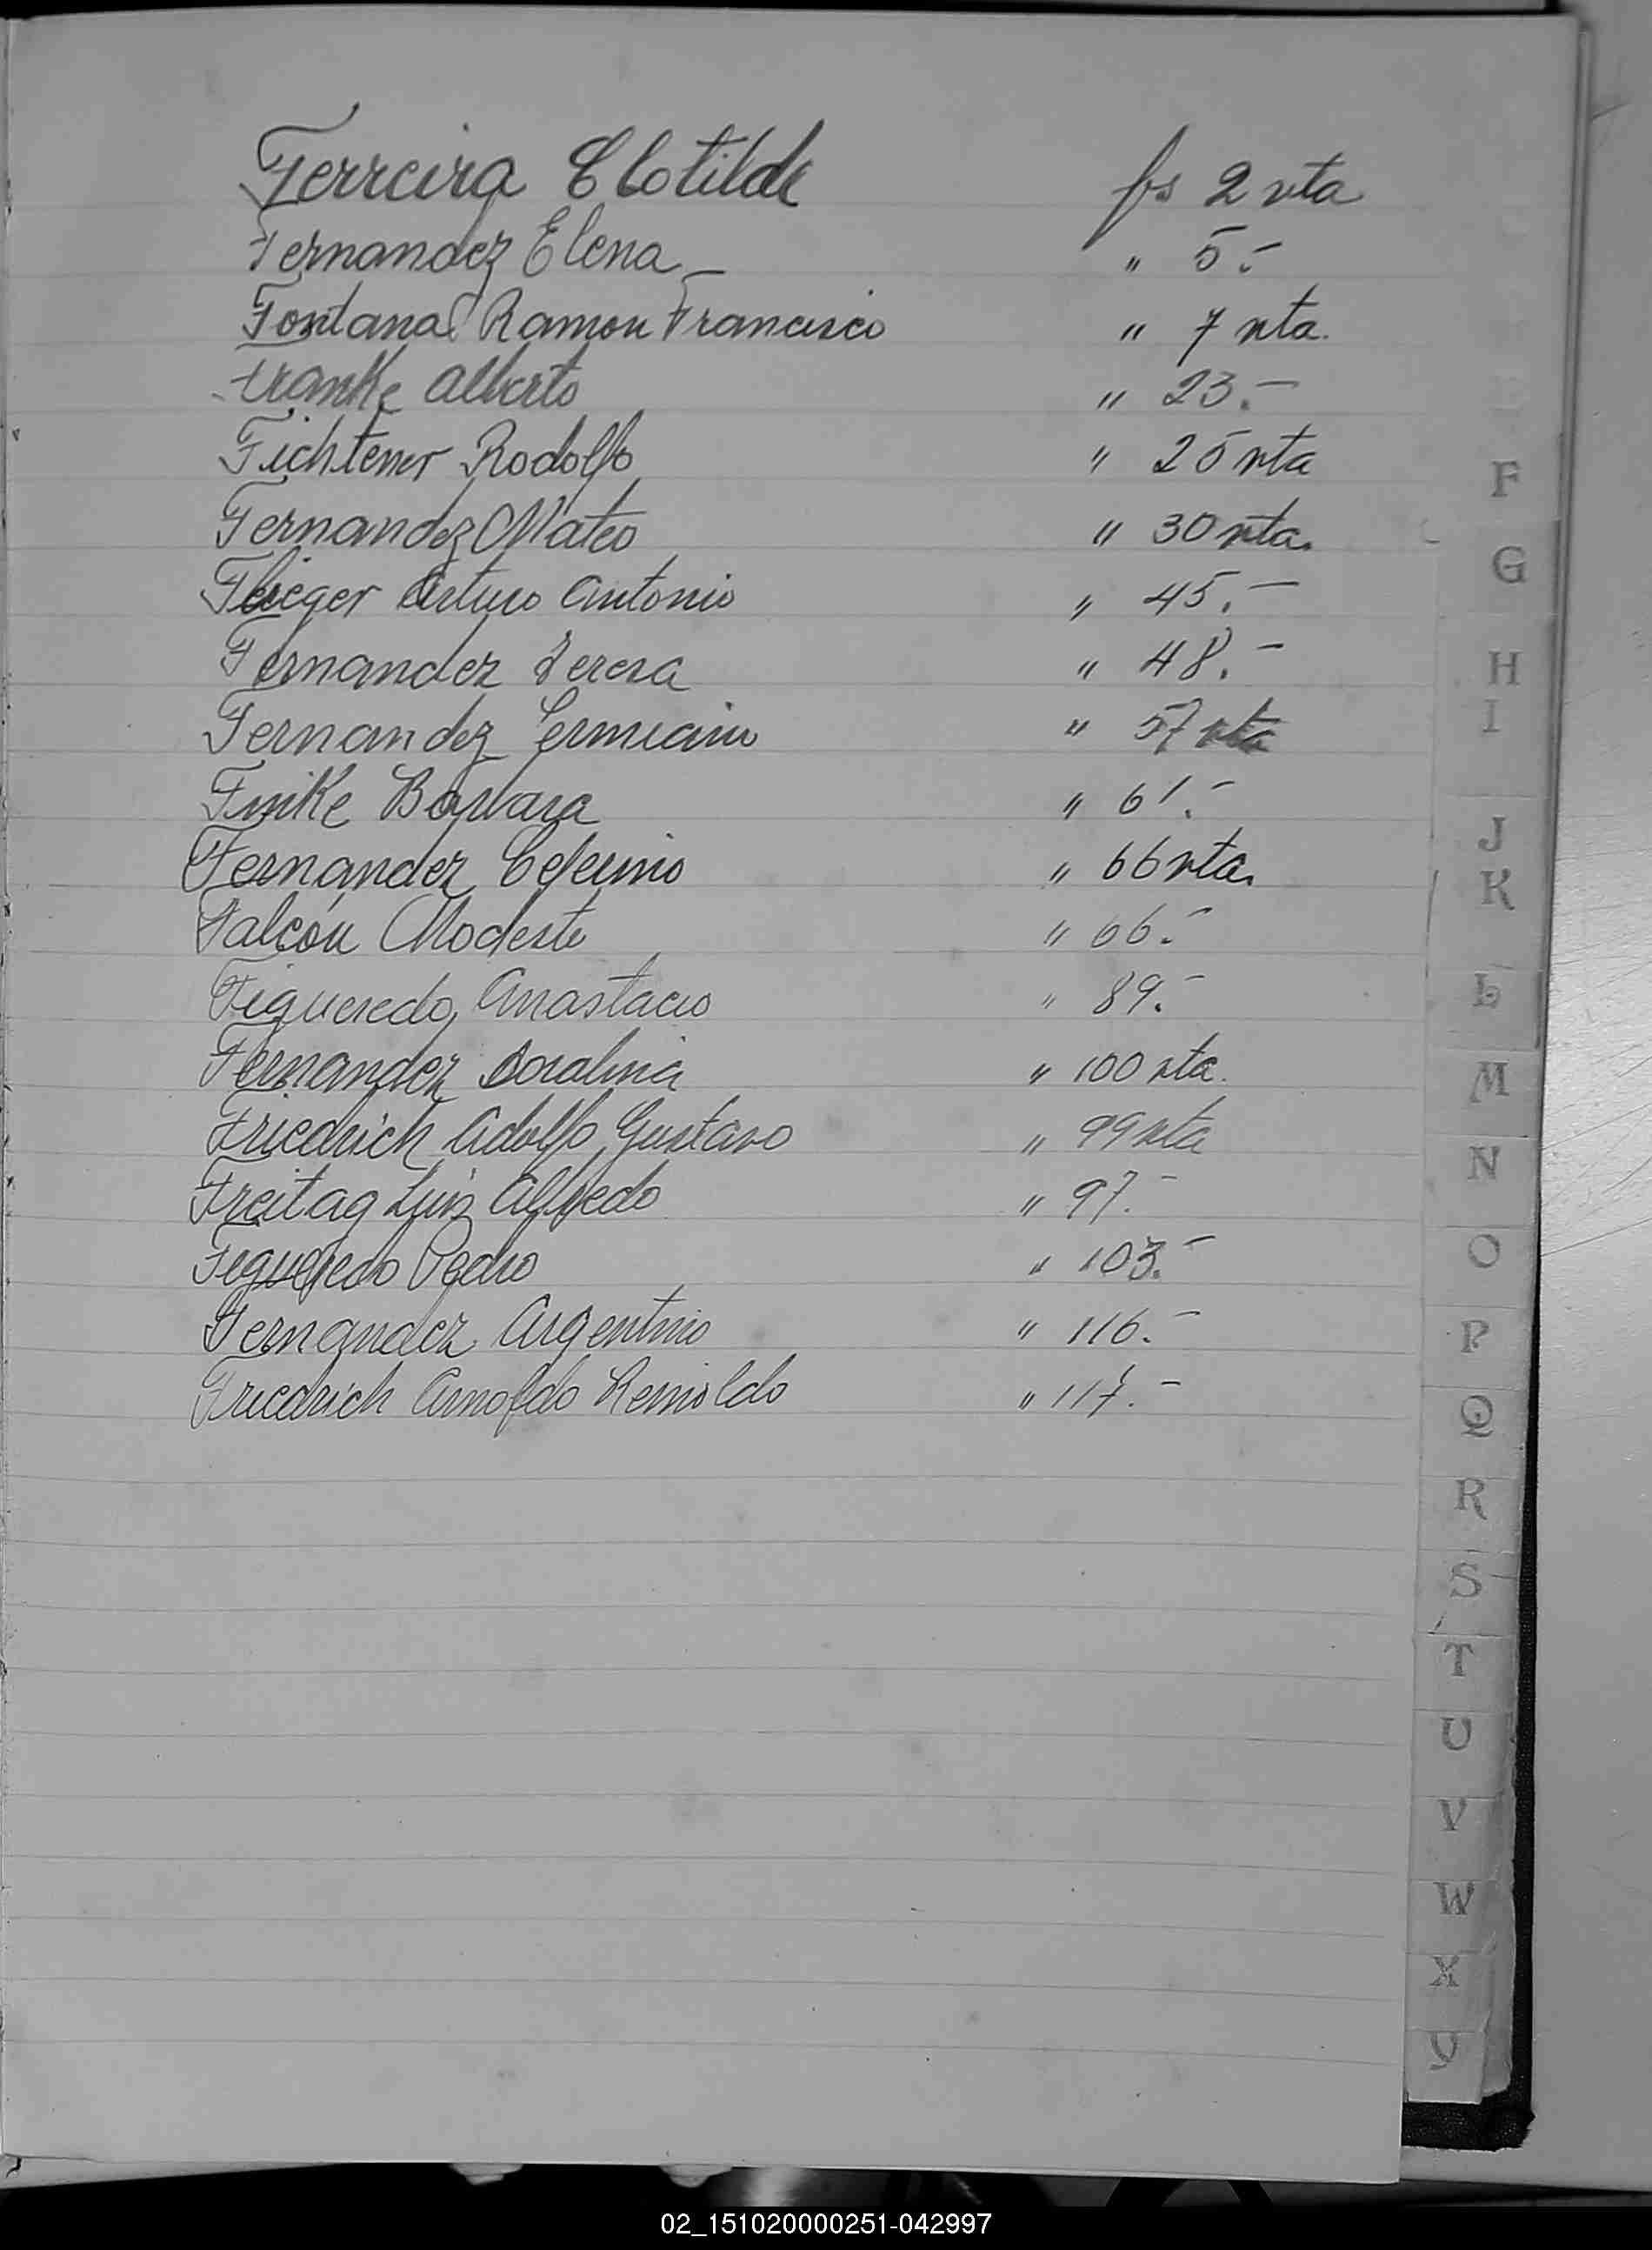 Ferreira Clotilde fs 2 vta
Fernandez Elena " 5.-
Fontana Ramon Francisco " 7 vta.
Franke Alberto " 23.-
Fichtener Rodolfo " 25 vta
Fernandez Mateo " 30 vta.
Flieger Arturo Antonio " 45.-
Fernandez Teresa " 48.-
Fernandez " 57 vta
Finke Barbara " 61.-
Fernandez Ceferino " 66 vta.
Falcón Modesto " 66.-
Figueredo, Anastacio " 89.-
Fernandez Doralina " 100 vta.
Friedrich Adolfo Gustavo " 99 vta
Freitag Luis Alfredo " 97.-
Figueredo Pedro " 103.-
Fernandez Argentino " 116.-
Friedrich Arnoldo Reinoldo " 117.-
F
G
H
I
J
K
L
M
N
O
P
Q
R
S
T
U
V
W
X
Y
02_151020000251-042997